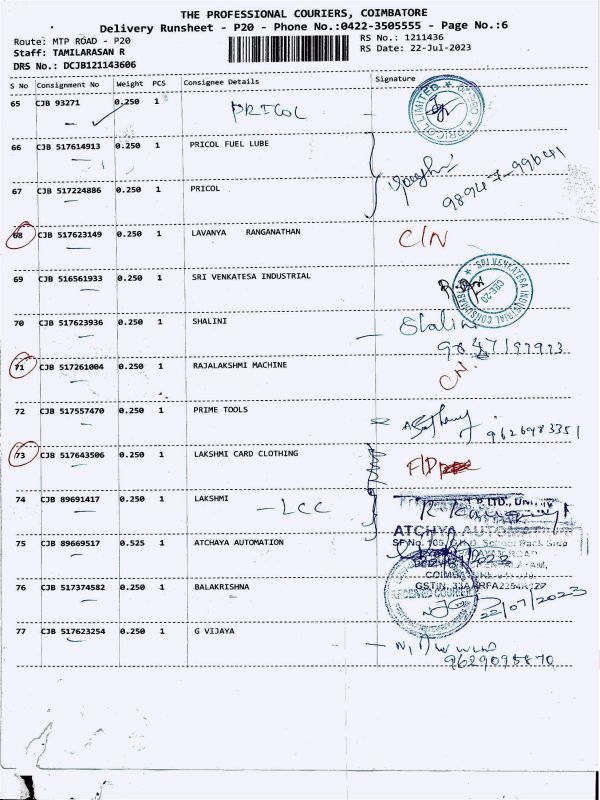 THE PROFESSIONAL COURIERS, COIMBATORE
Delivery Runsheet - P20 - Phone No.:0422-3505555 - Page No.:6
Route: MTP ROAD - P20 RS No.: 1211436
Staff: TAMILARASAN R RS Date: 22-Jul-2023
DRS No.: DCJB121143606
S No Consignment No Weight PCS Consignee Details Signature
65 CJB 93271 0.250 1 PRICOL
PRICOL LIMITED
66 CJB 517614913 0.250 1 PRICOL FUEL LUBE
67 CJB 517224886 0.250 1 PRICOL
68 CJB 517623149 0.250 1 LAVANYA RANGANATHAN C/N
69 CJB 516561933 0.250 1 SRI VENKATESA INDUSTRIAL
SRI VENKATESA INDUSTRIAL CONSUMABLES
CBE-20
70 CJB 517623936 0.250 1 SHALINI Shalini
71 CJB 517261004 0.250 1 RAJALAKSHMI MACHINE CN.
72 CJB 517557470 0.250 1 PRIME TOOLS
9626983351
73 CJB 517643506 0.250 1 LAKSHMI CARD CLOTHING F/D
74 CJB 89691417 0.250 1 LAKSHMI - LCC
75 CJB 89669517 0.525 1 ATCHAYA AUTOMATION
ATCHYA AUTOM
76 CJB 517374582 0.250 1 BALAKRISHNA
RECEIVED COURIER
22/07/2023
77 CJB 517623254 0.250 1 G VIJAYA
9629095870